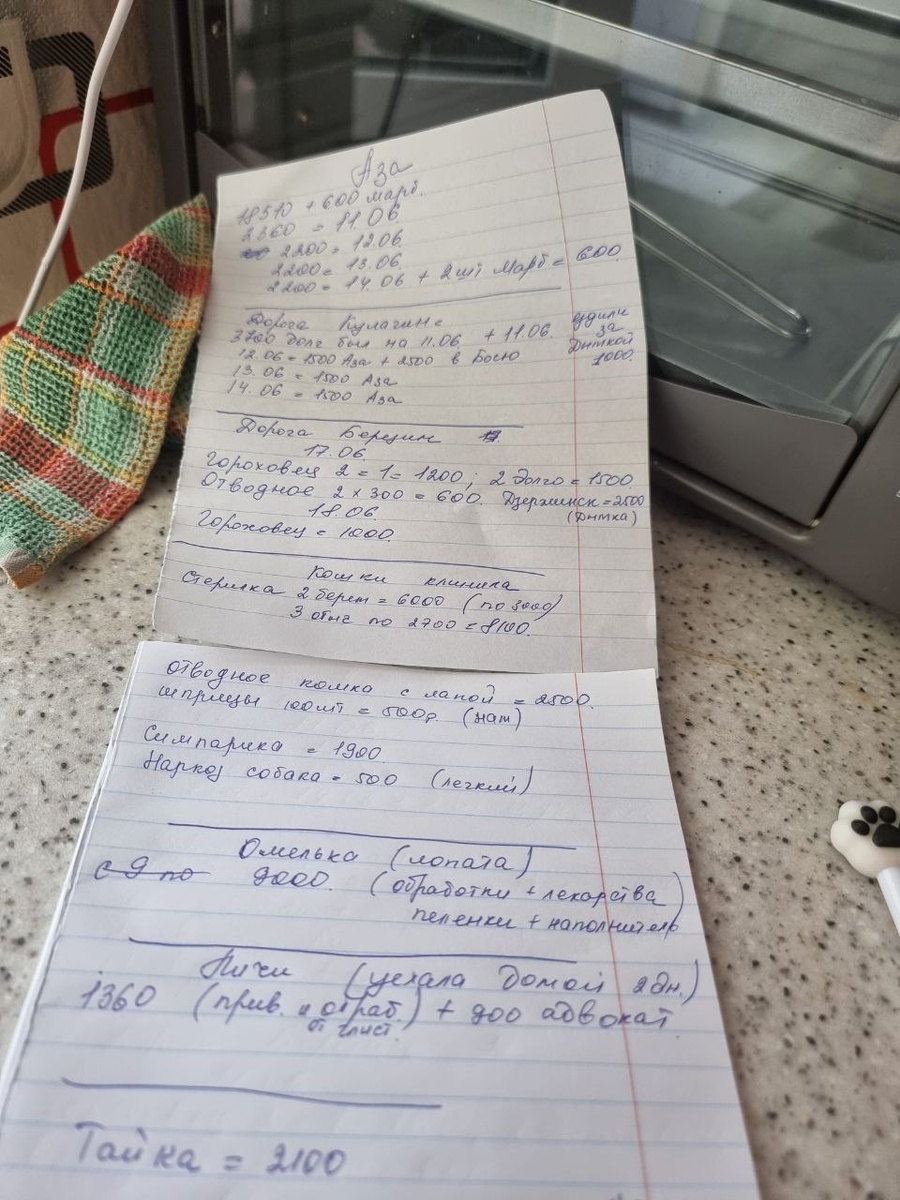 Аза
18510 + 600 март.
2360 = 11.06
2200 = 12.06.
2200 = 13.06.
2200 = 14.06 + 2 шт Март = 600
Дорога Кулагинс
3700 долг был на 11.06. + 11.06. ездили за Дымкой 1000.
12.06 = 1500 Аза + 2500 в Босю
13.06 = 1500 Аза
14.06 = 1500 Аза
Дорога Берецин
17.06.
Гороховец 2 = 1 = 1200; 2 долго = 1500
Отводное 2 х 300 = 600. Дзержинск = 2500
(Дымка)
18.06.
Гороховец = 1000.
Кошки клиника
Стерилка 2 берем = 6000 (по 3000)
3 отыг по 2700 = 8100.
Отводное кошка с лапой = 2500.
шприцы 100шт = 500р. (нам)
Симпарика = 1900.
Наркоз собака = 500 (легкий)
Омелька (лопата)
с 9 по 9000. (обработки + лекарства
пеленки + наполнитель
Ричи (уехала домой 2 дн.)
1360 (прив. и обраб.) + 900 адвокат
от глист.
Тайка = 2100